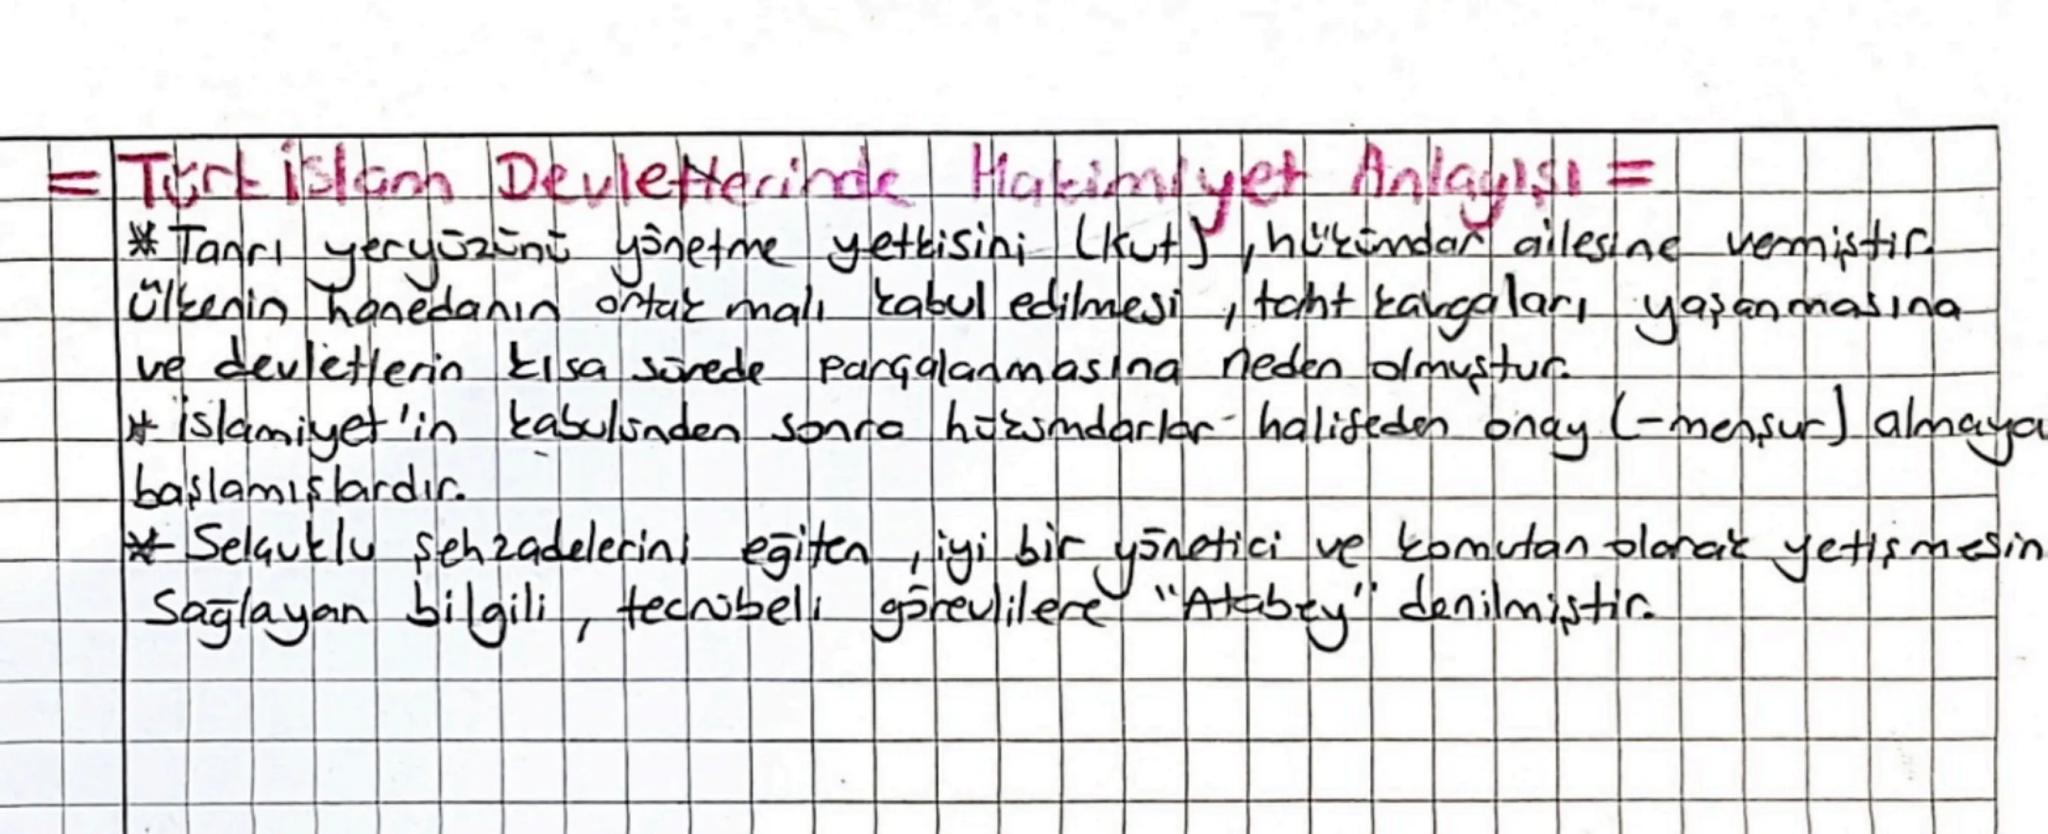 = Türk İslam Devletlerinde Hakimiyet Anlayışı =
* Tanrı yeryüzünü yönetme yetkisini (kut), hükümdar ailesine vermiştir.
ülkenin hanedanın ortak malı kabul edilmesi, taht kavgaları yaşanmasına
ve devletlerin kısa sürede parçalanmasına neden olmuştur.
* islamiyet'in kabulünden sonra hükümdarlar halifeden onay (-menşur) almaya
başlamışlardır.
* Selçuklu şehzadelerini eğiten, iyi bir yönetici ve komutan olarak yetişmesin
sağlayan bilgili, tecrübeli görevlilere "Atabey" denilmiştir.